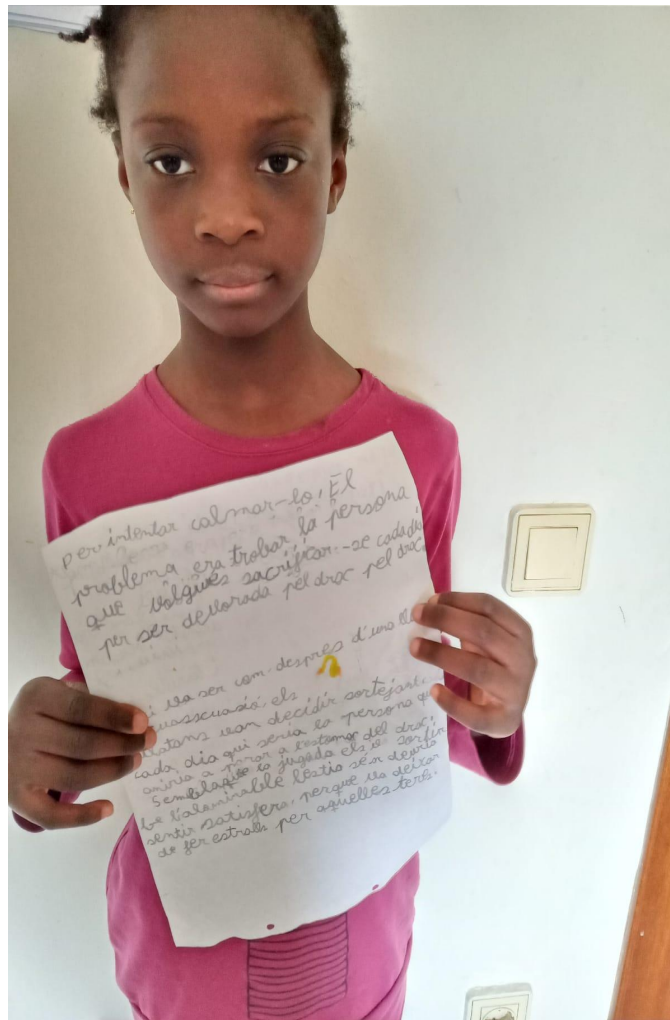 per intentar calmar-lo, El
problema era trobar la persona
que volgués sacrificar-se cada dia
per ser devorada pel drac pel drac
i va ser com després d'una
els
van decidir sortejar
cada dia qui seria la persona
aniria a parar a l'estomac del drac,
Sembla que la jugada els va sortir
be l'abominable bestia se'n devia
sentir satisfera, perque va deixar
de fer estralls per aquelles